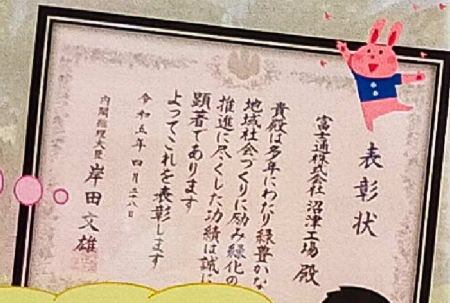 表彰状
富士通株式会社 沼津工場 殿
貴殿は多年にわたり緑豊かな
地域社会づくりに励み緑化の
推進に尽くした功績は誠に
顕著であります
よってこれを表彰します
令和五年四月二八日
内閣総理大臣 岸田文雄